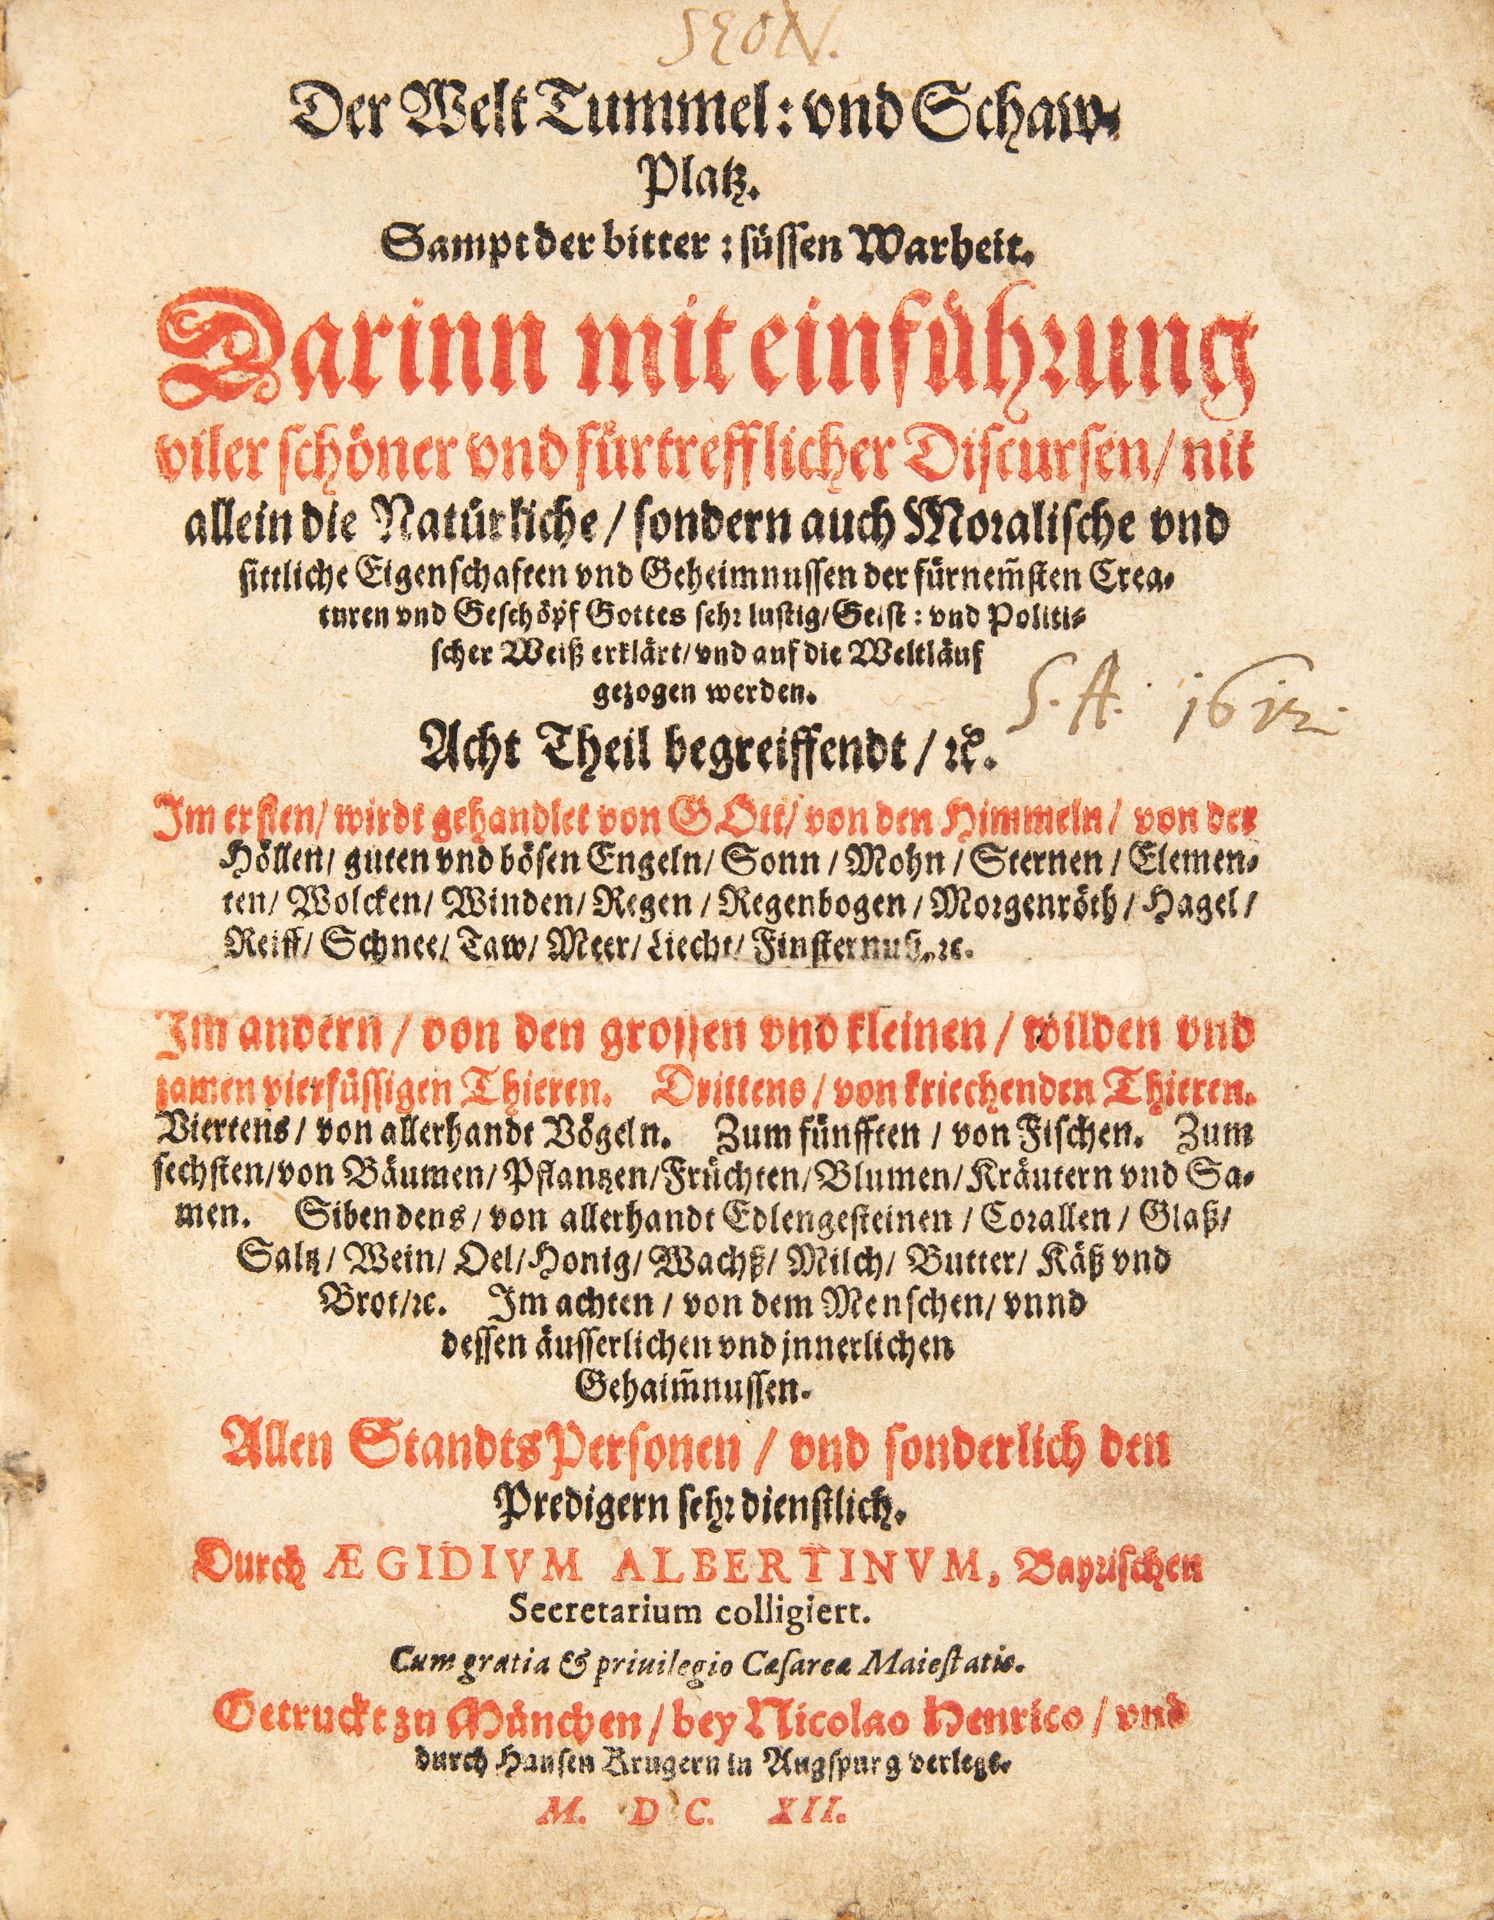 SEON.
Der Welt Tummel: vnd Schaw-
Platz.
Sampt der bitter: süssen Warheit.
Darinn mit einführung
viler schöner vnd fürtrefflicher Discursen/ nit
allein die Natürliche/ sondern auch Moralische vnd
sittliche Eigenschafften vnd Geheimnussen der fürnem̃sten Crea-
turen vnd Geschöpf Gottes sehr lustig/ Geist: vnd Politi-
scher Weiß erklärt/ vnd auf die Weltläuf
gezogen werden.
S. A. 1612.
Acht Theil begreiffendt/ ꝛc.
Im ersten/ wirdt gehandlet von GOtt/ von den Himmeln/ von der
Höllen/ guten vnd bösen Engeln/ Sonn/ Mohn/ Sternen/ Elemen-
ten/ Wolcken/ Winden/ Regen/ Regenbogen/ Morgenröth/ Hagel/
Reiff/ Schnee/ Taw/ Meer/ Liecht/ Finsternuß, ꝛc.
Im andern/ von den grossen vnd kleinen/ wilden vnd
zamen vierfüssigen Thieren. Drittens/ von kriechenden Thieren.
Viertens/ von allerhandt Vögeln. Zum fünfften/ von Fischen. Zum
sechsten/ von Bäumen/ Pflantzen/ Früchten/ Blumen/ Kräutern vnd Sa-
men. Sibendens/ von allerhandt Edlengesteinen/ Corallen/ Glaß/
Saltz/ Wein/ Oel/ Honig/ Wachß/ Milch/ Butter/ Käß vnd
Brot/ ꝛc. Im achten/ von dem Menschen/ vnnd
dessen äusserlichen vnd jnnerlichen
Gehaim̃nussen.
Allen Standts Personen/ vnd sonderlich den
Predigern sehr dienstlich.
Durch ÆGIDIVM ALBERTINVM, Bayrischen
Secretarium colligiert.
Cum gratia & priuilegio Cæsareæ Maiestatis.
Getruckt zu München/ bey Nicolao Henrico/ vnd
durch Hansen Krugern in Augspurg verlegt.
M. DC. XII.